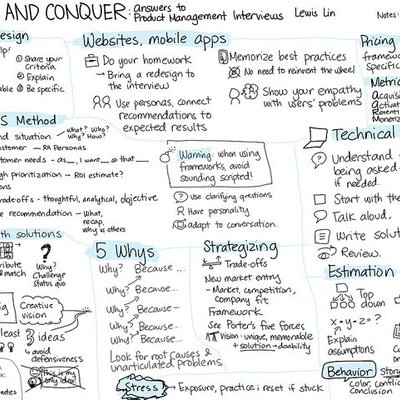 AND CONQUER: Answers to
Product Management Interviews Lewis Lin
Notes -
esign
help!
① Share your
Criteria
② Explain
③ Be specific
Websites, mobile apps
Do your homework
- Bring a redesign to
the interview
Use personas, connect
recommendations to
expected results
Memorize best practices
No need to reinvent the wheel
Show your empathy
with users' problems
Pricing
framework
Specific
Metric
Acquis
Activat
Retenti
Monetiz
S Method
nd situation - What? Who?
Why? How?
ustomer - RA Personas
ustomer needs - as__, I want__ so that__
gh prioritization - ROI estimate?
ons
rade-offs - thoughtful, analytical, objective
e recommendation - What,
recap,
why is others
Warning: when using
frameworks, avoid
sounding scripted!
Use clarifying questions
Have personality
adapt to conversation.
Technical
Understand
being asked.
if needed.
Start with the
Talk about.
Write solut
Review.
th solutions
tribute
match
Why?
Challenge
status quo
Creative
vision
least
ideas
avoid
defensiveness
This is my
only idea!
5 Whys
Why? Because...
Why? Because...
Why? Because...
Why? Because...
Why? Because...
Look for root causes &
unarticulated problems
Stress → Exposure, practice; reset if stuck
Strategizing
Trade-offs
New market entry
- Market, competition,
company fit
Framework
See Porter's five forces
Vision: unique, memorable
+ solution → durability
Estimation
Top
down
x · y ÷ z = ?
Explain
assumptions
Behavior
Story
color, conflic
conclusion